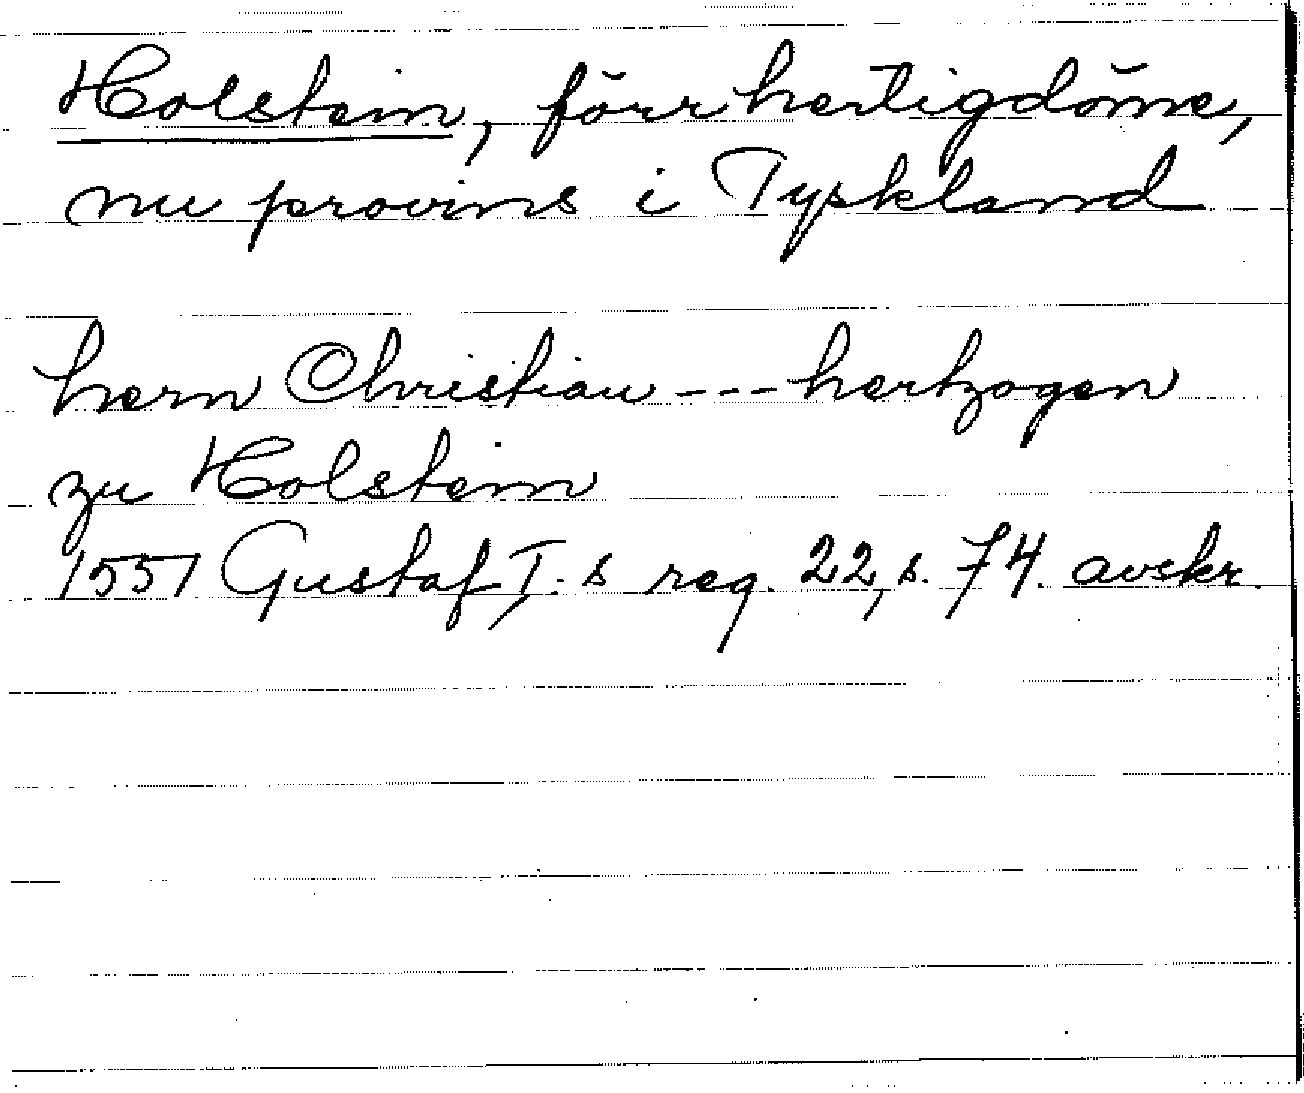 Holstein, förr hertigdöme,
nu provins i Tyskland
hern Christian --- hertzogen
zu Holstein
1551 Gustaf I.s reg. 22, s. 74. avskr.